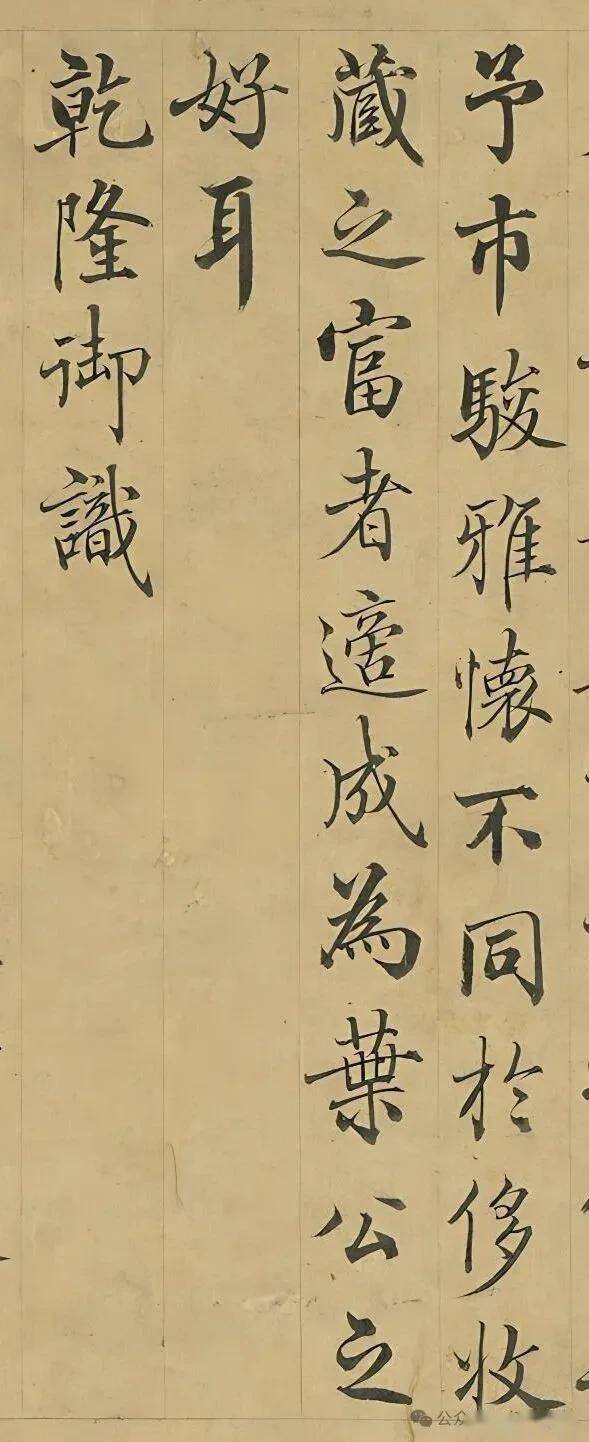 予市駿雅懷不同於侈收
蔵之富者適成為葉公之
好耳
乾隆御識
公众